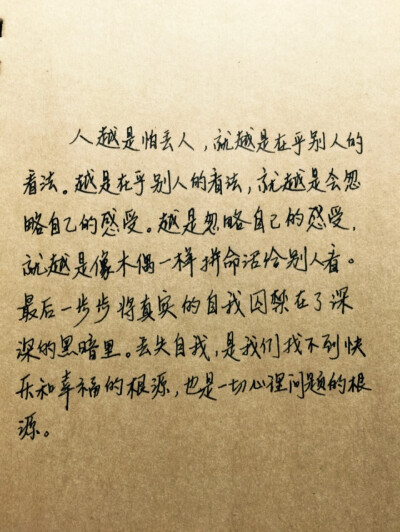 人越是怕丢人，就越是在乎别人的
看法。越是在乎别人的看法，就越是会忽
略自己的感受。越是忽略自己的感受，
就越是像木偶一样拼命活给别人看。
最后一步步将真实的自我囚禁在了深
深的黑暗里。丢失自我，是我们找不到快
乐和幸福的根源，也是一切心理问题的根
源。